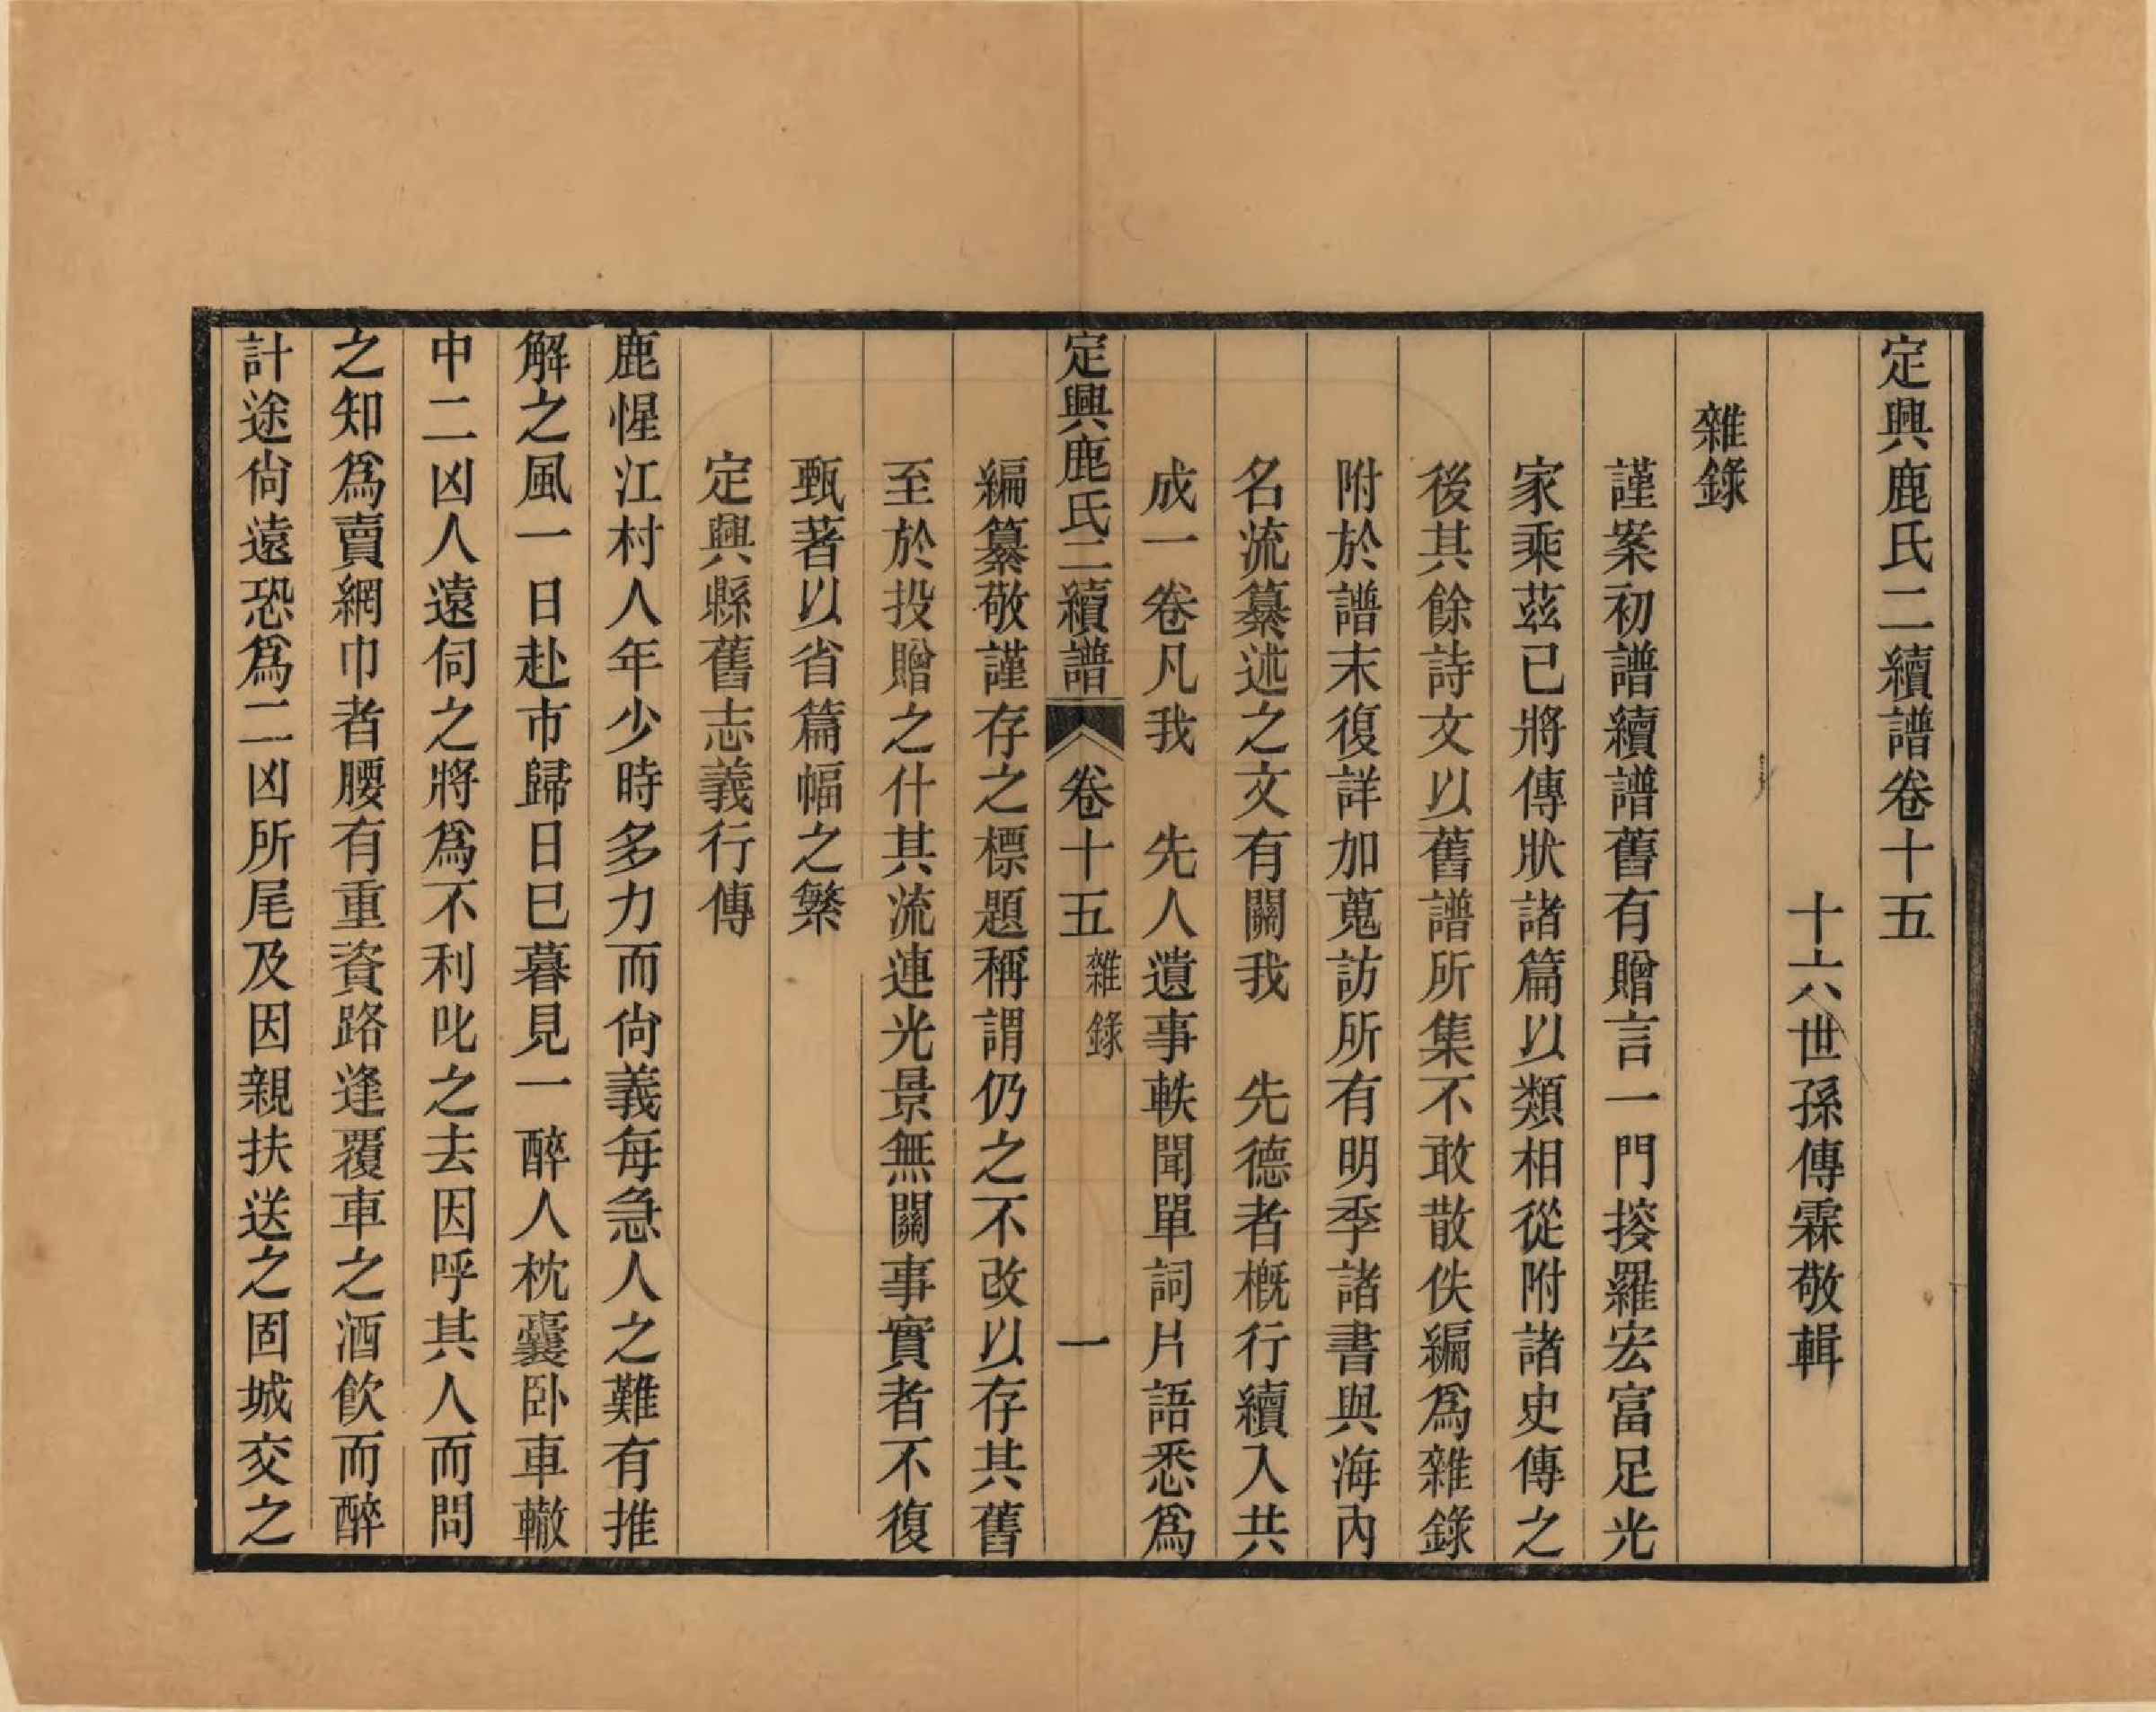 定興鹿氏二續譜卷十五
十六世孫傳霖敬輯
雜錄
謹案初譜續譜舊有贈言一門搜羅宏富足光
家乘茲已將傳狀諸篇以類相從附諸史傳之
後其餘詩文以舊譜所集不敢散佚編爲雜錄
附於譜末復詳加蒐訪所有明季諸書與海內
名流纂述之文有關我　先德者槪行續入共
成一卷凡我　先人遺事軼聞單詞片語悉爲
定興鹿氏二續譜　卷十五　雜錄　一
編纂敬謹存之標題稱謂仍之不改以存其舊
至於投贈之什其流連光景無關事實者不復
甄著以省篇幅之繁
定興縣舊志義行傳
鹿惺江村人年少時多力而尙義每急人之難有推
解之風一日赴市歸日已暮見一醉人枕囊卧車轍
中二凶人遠伺之將爲不利叱之去因呼其人而問
之知爲賣網巾者腰有重資路逢覆車之酒飮而醉
計途尙遠恐爲二凶所尾及因親扶送之固城交之